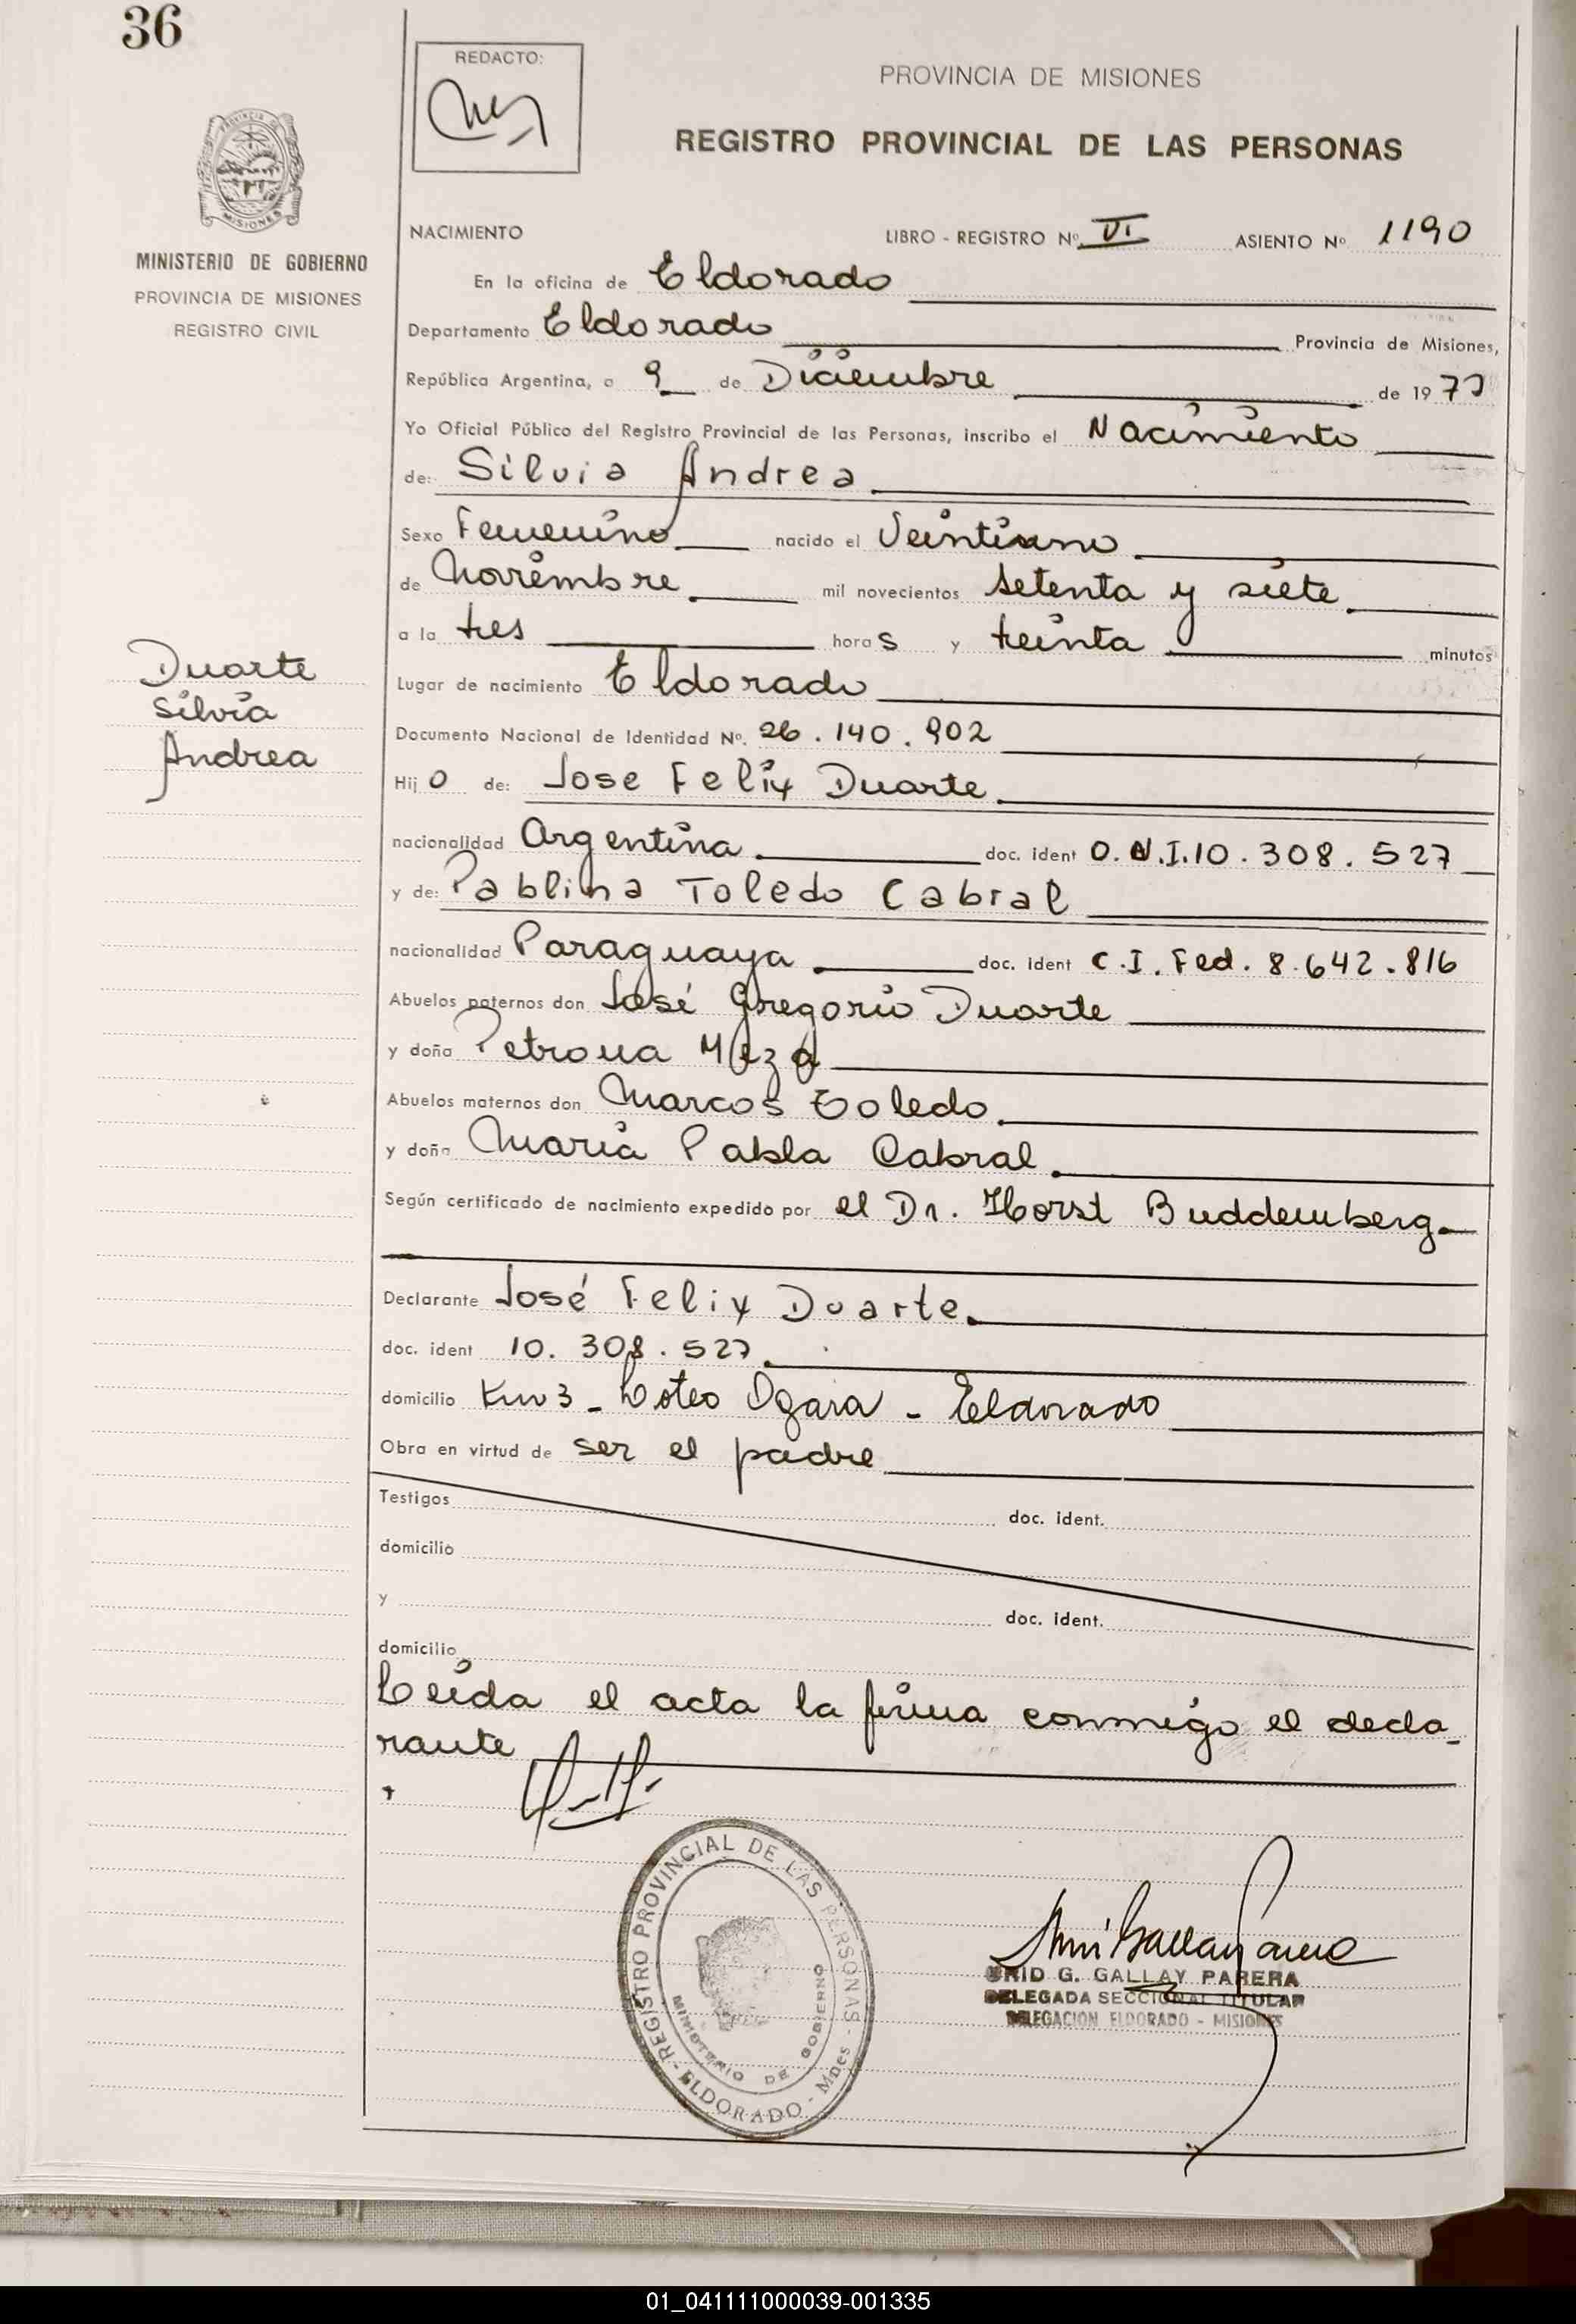 36
REDACTO:
PROVINCIA DE MISIONES
REGISTRO PROVINCIAL DE LAS PERSONAS
PROVINCIA DE
MISIONES
MINISTERIO DE GOBIERNO
PROVINCIA DE MISIONES
REGISTRO CIVIL
NACIMIENTO LIBRO - REGISTRO Nº VI ASIENTO Nº 1190
En la oficina de Eldorado
Departamento Eldorado Provincia de Misiones,
República Argentina, a 9 de Diciembre de 1977
Yo Oficial Público del Registro Provincial de las Personas, inscribo el Nacimiento
de: Silvia Andrea
Sexo Femenino nacido el Veintiuno
de Noviembre mil novecientos setenta y siete
a la tres horas y treinta minutos
Duarte
Silvia
Andrea
Lugar de nacimiento Eldorado
Documento Nacional de Identidad Nº. 26.140.902
Hijo de: Jose Felix Duarte
nacionalidad Argentina doc. ident D.N.I.10.308.527
y de: Pablina Toledo Cabral
nacionalidad Paraguaya doc. ident C.I. Fed. 8.642.816
Abuelos paternos don José Gregorio Duarte
y doña Petrona Meza
Abuelos maternos don Marcos Toledo
y doña Maria Pabla Cabral
Según certificado de nacimiento expedido por el Dr. Horst Buddemberg
Declarante José Felix Duarte
doc. ident 10.308.527
domicilio Km 3 - Loteo Ogara - Eldorado
Obra en virtud de ser el padre
Testigos doc. ident.
domicilio
y doc. ident.
domicilio
Leida el acta la firma conmigo el decla-
rante
REGISTRO PROVINCIAL DE LAS PERSONAS - ELDORADO - Mnes
MINISTERIO DE GOBIERNO
URID G. GALLAY PARERA
DELEGADA SECCIONAL TITULAR
DELEGACION ELDORADO - MISIONES
01_041111000039-001335